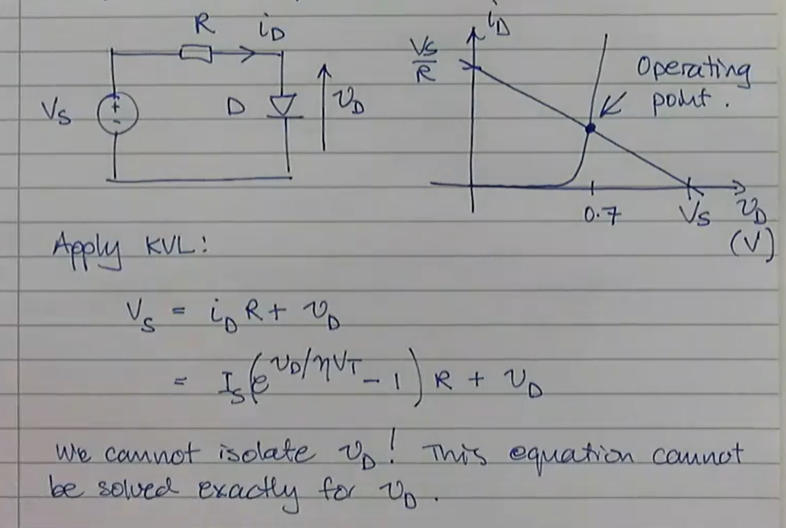 R
i_D
V_S
+
-
D
v_D
i_D
V_S/R
Operating
point.
0.7
V_S
v_D
(V)
Apply KVL:
V_S = i_D R + v_D
= I_S(e^{v_D/ηV_T} - 1) R + v_D
We cannot isolate v_D! This equation cannot
be solved exactly for v_D.